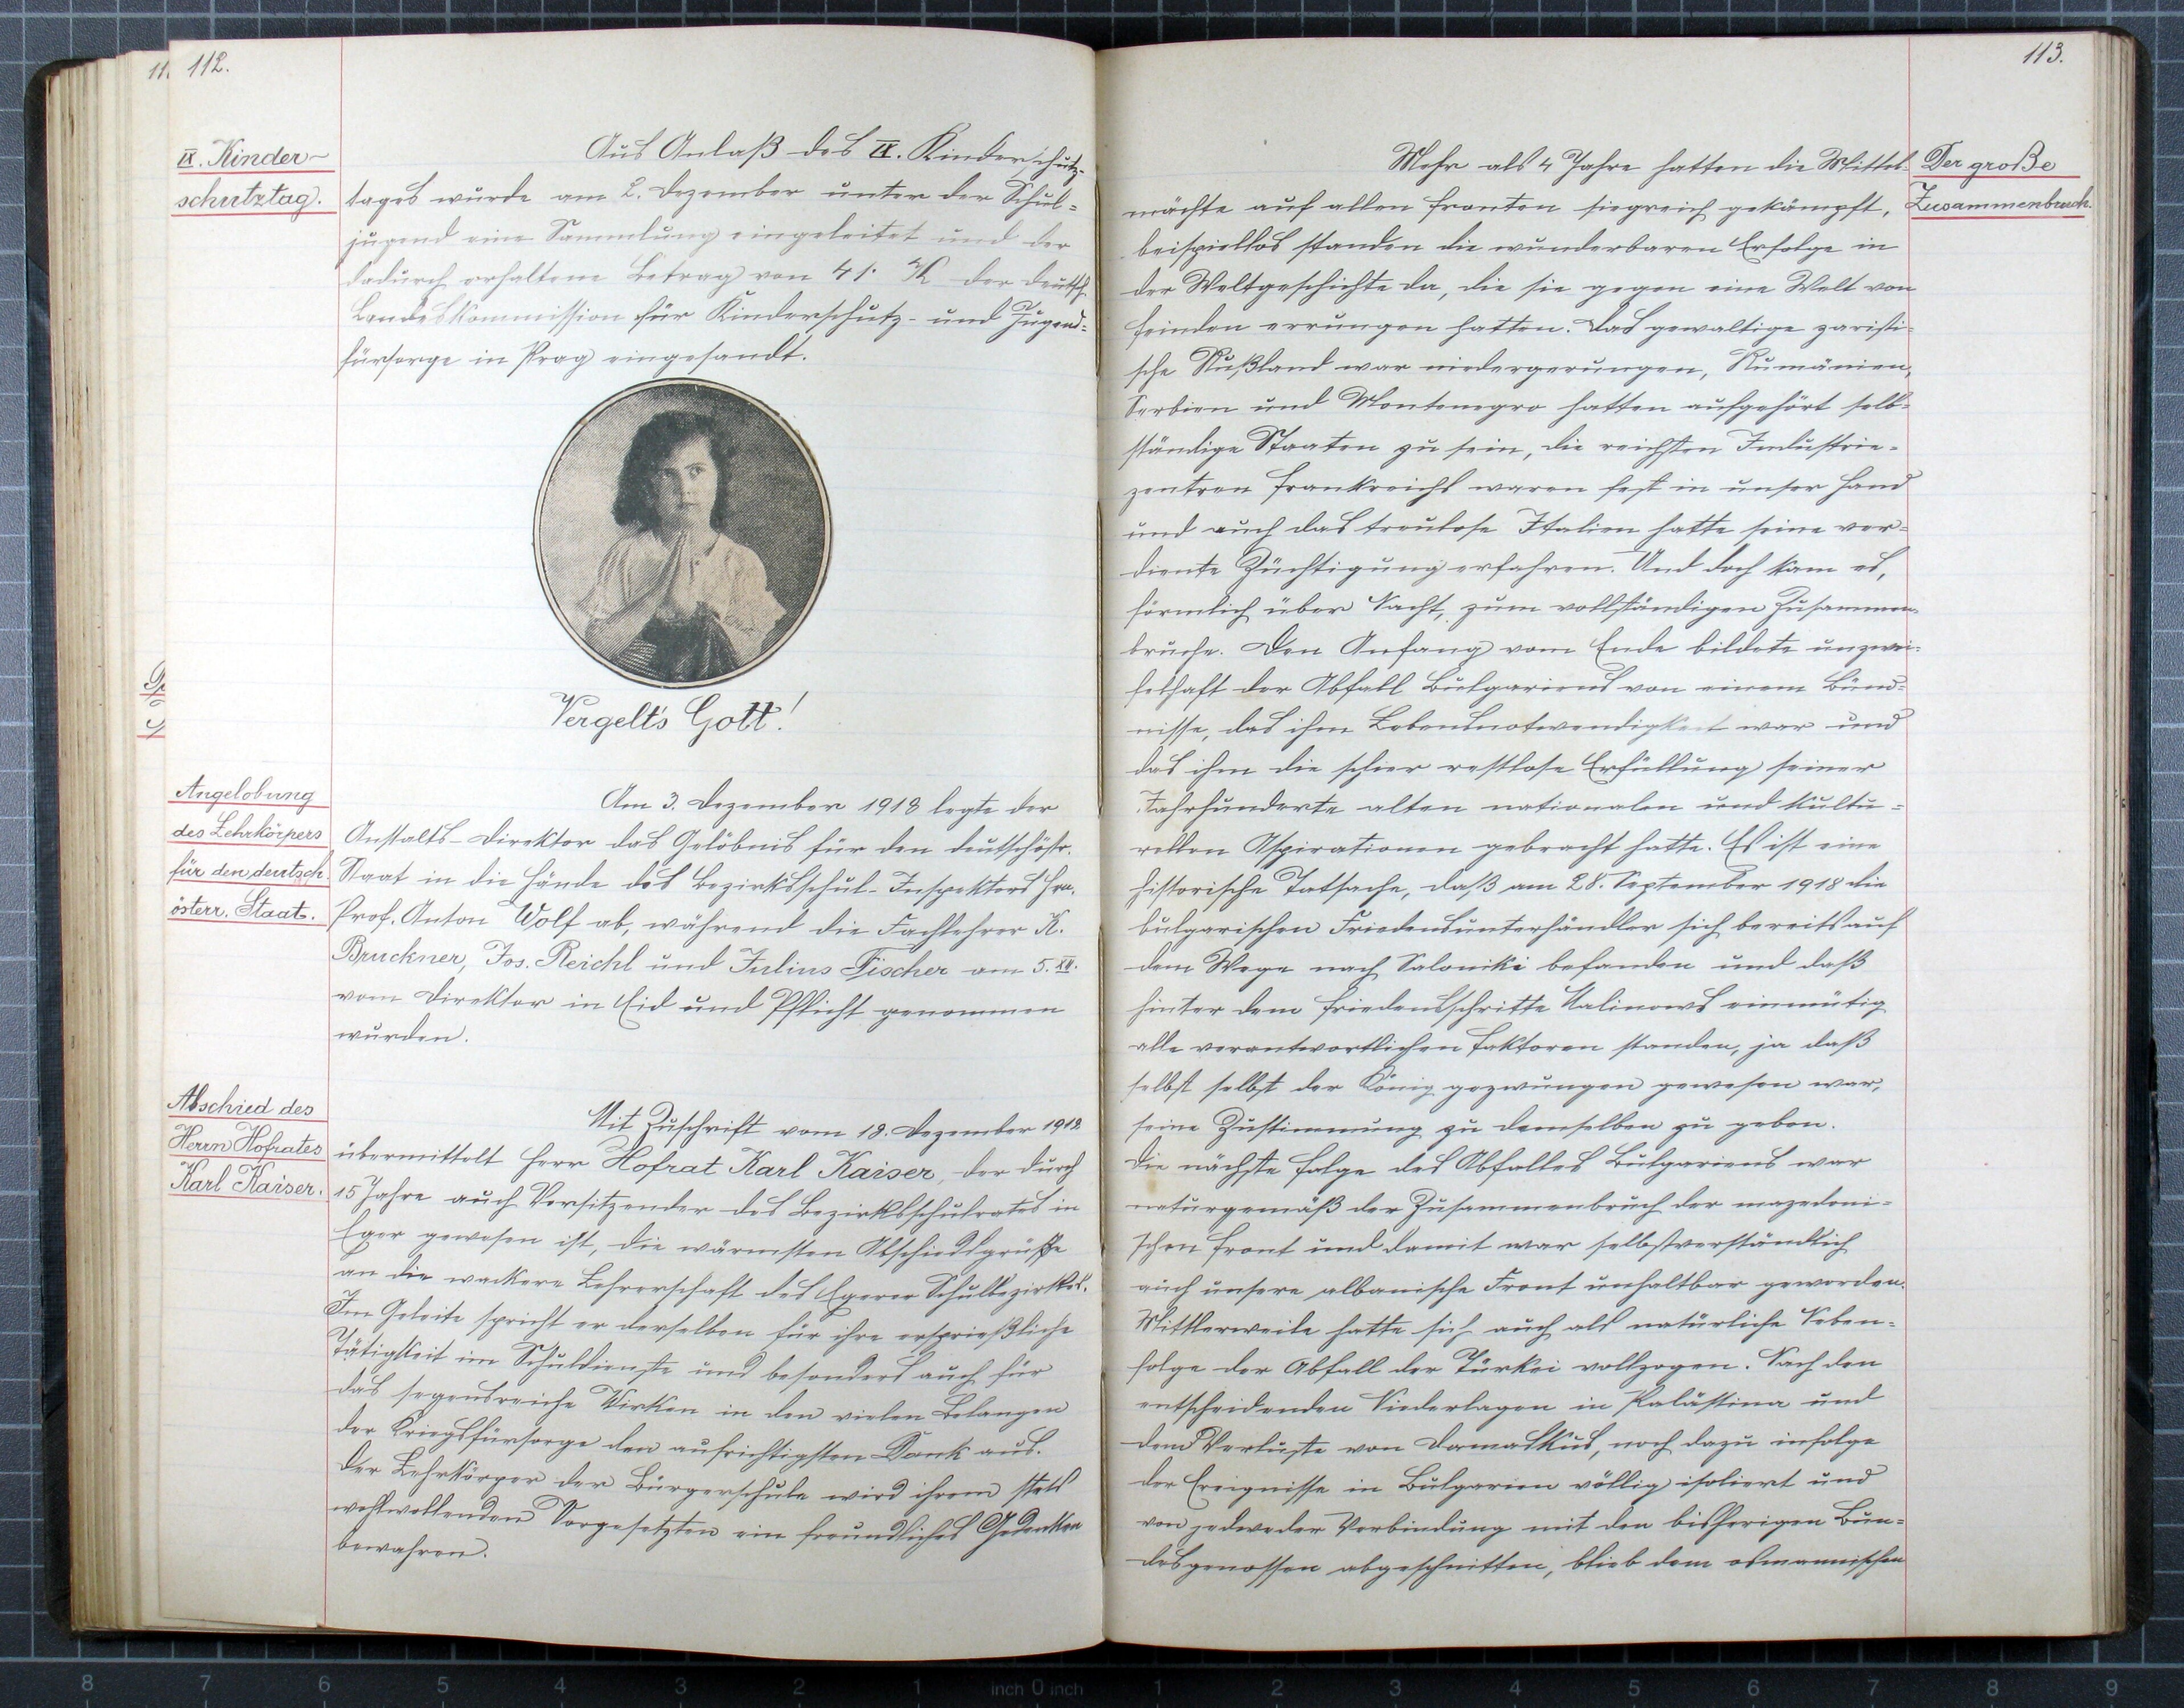 112.
IX. Kinder-
schutztag.
Aus Anlaß des IX. Kinderschutz-
tages wurde am 2. Dezember unter der Schul-
jugend eine Sammlung eingeleitet und der
dadurch erhaltene Betrag von 41· K der deutsch.
Landeskommission für Kinderschutz- und Jugend-
fürsorge in Prag eingesandt.
Vergelt's Gott!
Angelobung
des Lehrkörpers
für den deutsch.
österr. Staat.
Am 3. Dezember 1918 legte der
Anstalts-Direktor das Gelöbnis für den deutschöstr.
Staat in die Hände des Bezirksschul-Inspektors Hrn.
Prof. Anton Wolf ab, während die Fachlehrer K.
Bruckner, Jos. Reichl und Julius Fischer am 5. XII.
vom Direktor in Eid und Pflicht genommen
wurden.
Abschied des
Herrn Hofrates
Karl Kaiser.
Mit Zuschrift vom 18. Dezember 1918
übermittelt Herr Hofrat Karl Kaiser, der durch
15 Jahre auch Vorsitzender des Bezirksschulrates in
Eger gewesen ist, die wärmsten Abschiedsgrüße
an die wackere Lehrerschaft des Egerer Schulbezirkes.
Im Geleite spricht er derselben für ihre ersprießliche
Tätigkeit im Schuldienste und besonders auch für
das segensreiche Wirken in den vielen Belangen
der Kriegsfürsorge den aufrichtigsten Dank aus.
Der Lehrkörper der Bürgerschule wird ihrem stets
wohlwollenden Vorgesetzten ein freundliches Gedenken
bewahren.
113.
Der große
Zusammenbruch.
Mehr als 4 Jahre hatten die Mittel-
mächte auf allen Fronten siegreich gekämpft,
beispiellos standen die wunderbaren Erfolge in
der Weltgeschichte da, die sie gegen eine Welt von
Feinden errungen hatten. Das gewaltige zaristi-
sche Rußland war niedergerungen, Rumänien,
Serbien und Montenegro hatten aufgehört selb-
ständige Staaten zu sein, die reichsten Industrie-
zentren Frankreichs waren fest in unser Hand
und auch das treulose Italien hatte seine ver-
diente Züchtigung erfahren. Und doch kam es,
förmlich über Nacht, zum vollständigen Zusammen-
bruche. Den Anfang vom Ende bildete unzwei-
felhaft der Abfall Bulgariens von einem Bünd-
nisse, das ihm Lebensnotwendigkeit war und
das ihm die schier restlose Erfüllung seiner
Jahrhunderte alten nationalen und kultu-
rellen Aspirationen gebracht hatte. Es ist eine
historische Tatsache, daß am 28. September 1918 die
bulgarischen Friedensunterhändler sich bereits auf
dem Wege nach Saloniki befanden und daß
hinter dem Friedensschritte Malinows einmütig
alle verantwortlichen Faktoren standen, ja daß
selbst selbst der König gezwungen gewesen war,
seine Zustimmung zu demselben zu geben.
Die nächste Folge des Abfalles Bulgariens war
naturgemäß der Zusammenbruch der mazedoni-
schen Front und damit war selbstverständlich
auch unsere albanische Front unhaltbar geworden.
Mittlerweile hatte sich auch als natürliche Neben-
folge der Abfall der Türkei vollzogen. Nach den
entscheidenden Niederlagen in Palästina und
dem Verluste von Damaskus, noch dazu infolge
der Ereignisse in Bulgarien völlig isoliert und
von jedweder Verbindung mit den bisherigen Bun-
desgenossen abgeschnitten, blieb dem osmannischen